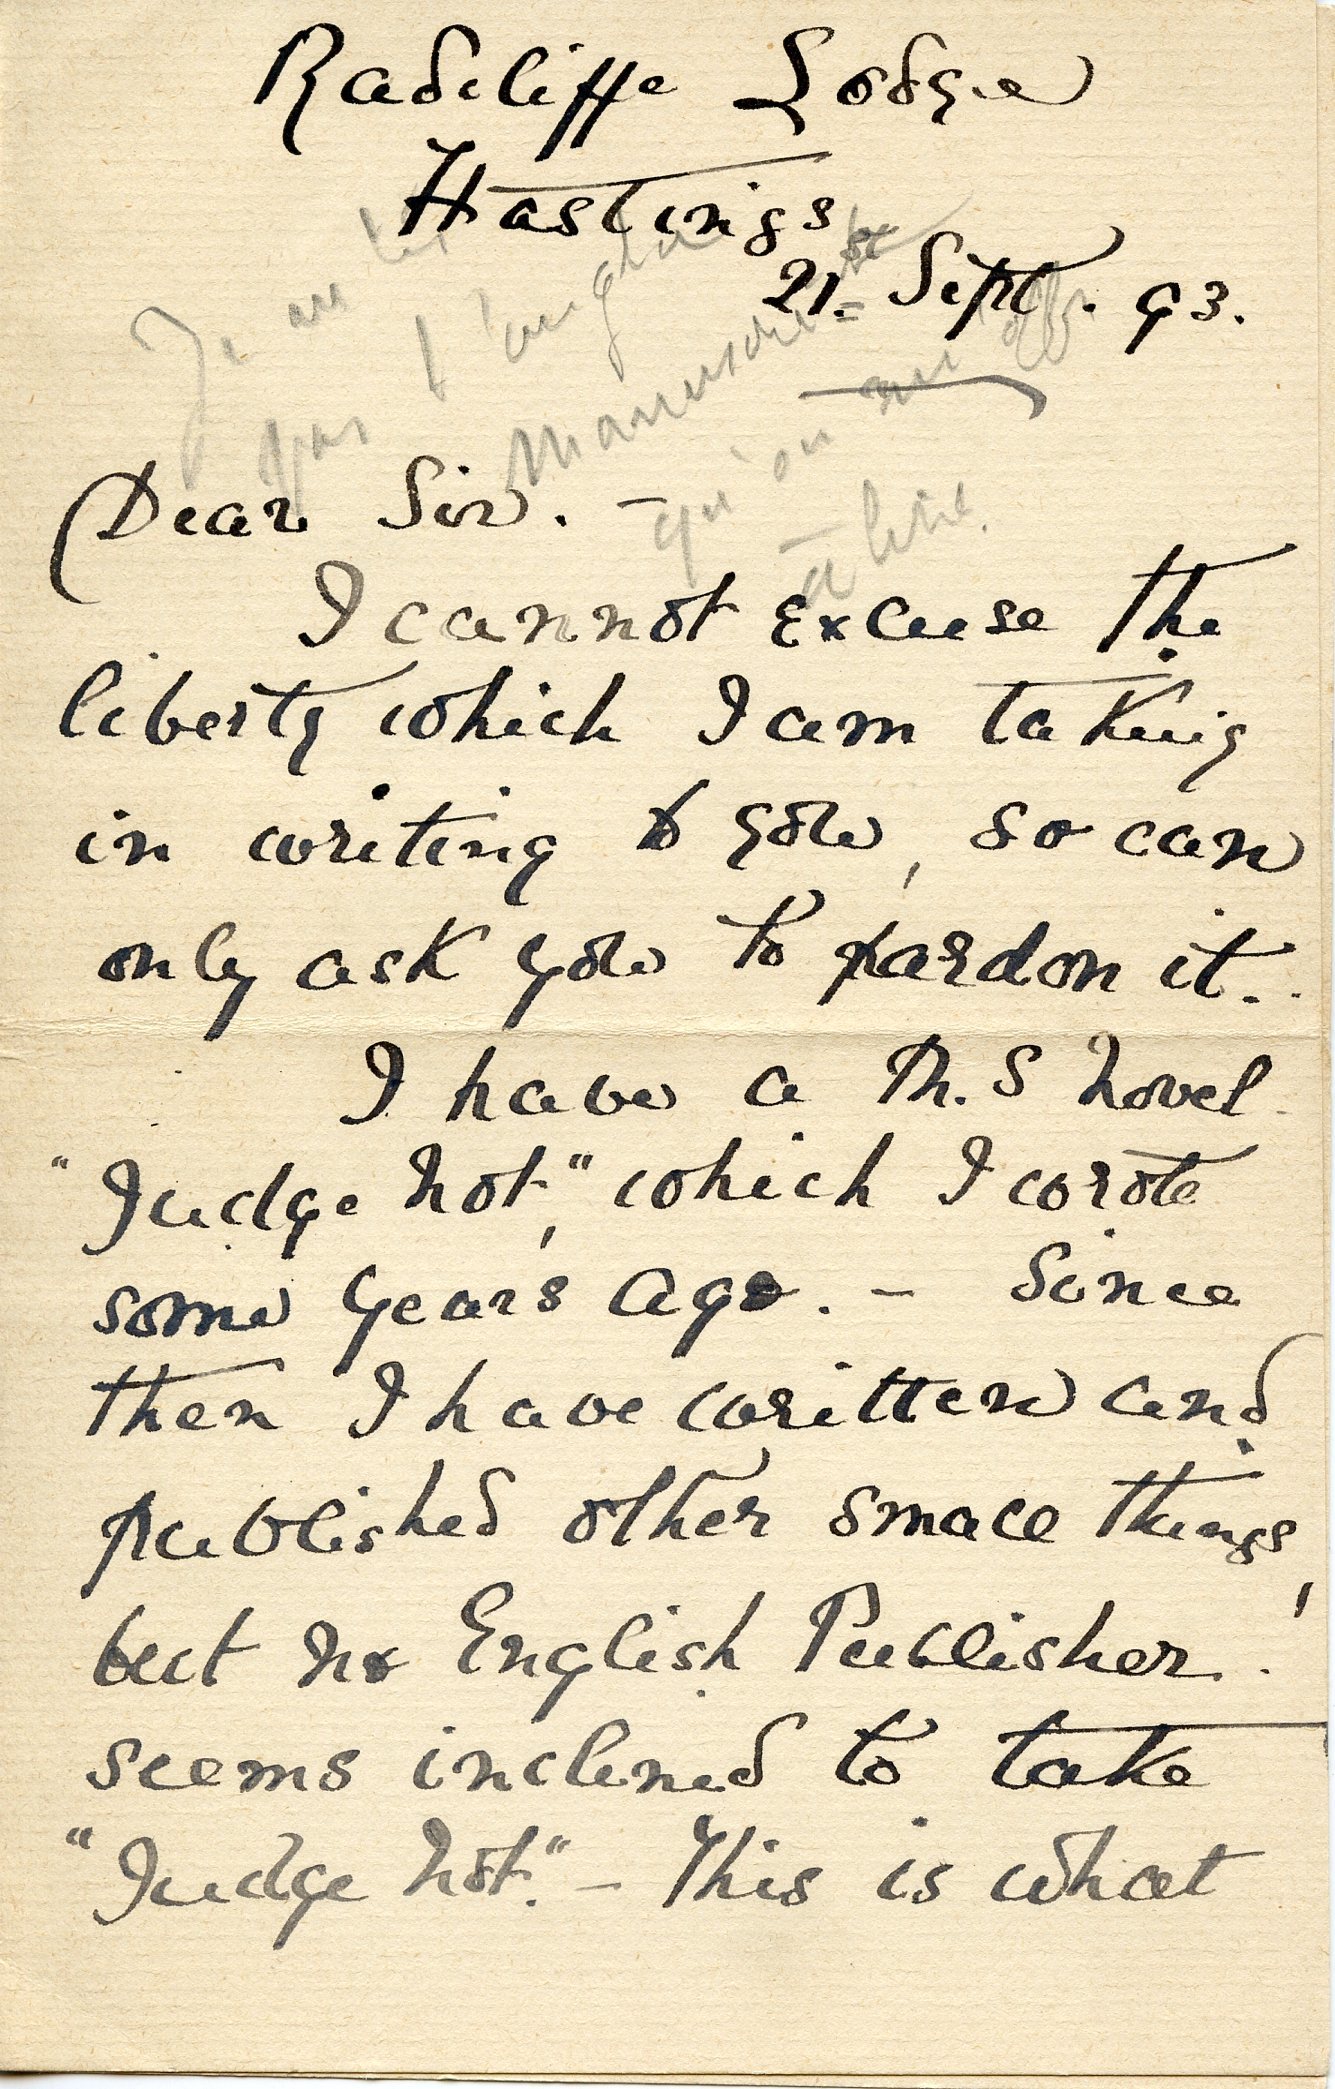 Radcliffe Lodge
Hastings
21.st Sept. 93.
Je ne lis
pas l'anglais
Manuscrit
qu'on
à lire.
Dear Sir. —
I cannot excuse the
liberty which I am taking
in writing to you, so can
only ask you to pardon it.
I have a M.S novel
"Judge not," which I wrote
some years ago. — Since
then I have written and
published other small things,
but no English Publisher
seems inclined to take
"Judge not." — This is what